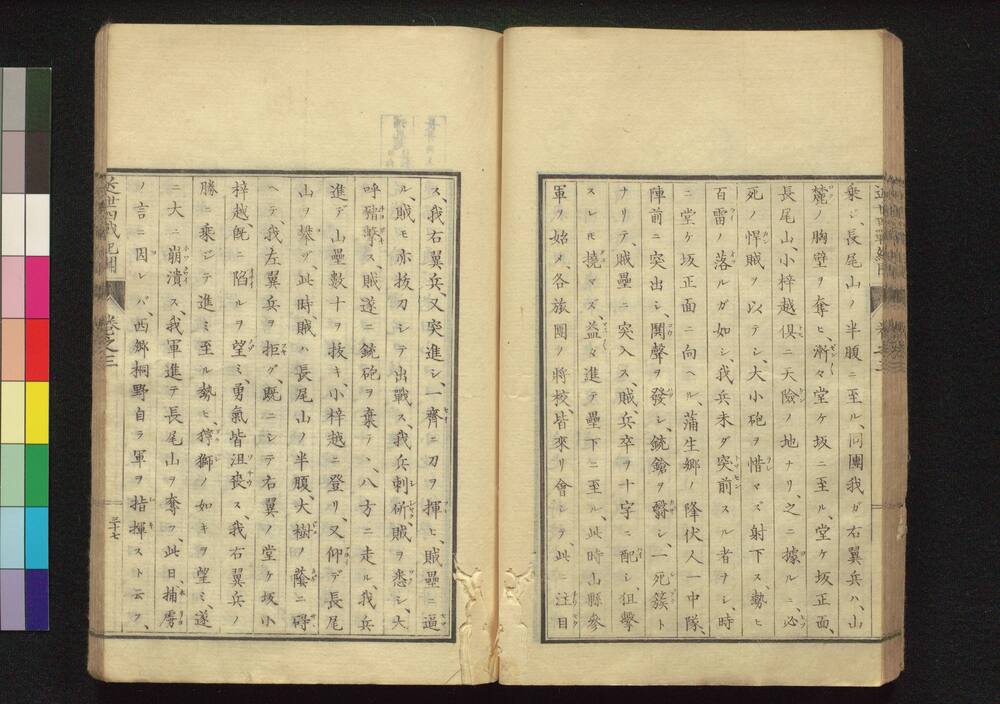 乗ジ、長尾山ノ半腹ニ至ル、同團我ガ右翼兵ハ、山
麓ノ胸壁ヲ奪ヒ、漸々堂ケ坂ニ至ル、堂ケ坂正面、
長尾山、小梓越、倶ニ天險ノ地ナリ、之ニ據ルニ、必
死ノ悍賊ヲ以テシ、大小砲ヲ惜マズ射下ス、勢ヒ
百雷ノ落ルガ如シ、我兵未ダ突前スル者ナシ、時
ニ堂ケ坂正面ニ向ヘル、蒲生郷ノ降伏人一中隊、
陣前ニ突出シ、鬨聲ヲ發シ、銃鎗ヲ翳シ、一死簇ト
ナリテ、賊壘ニ突入ス、賊兵卒ヲ十字ニ配シ、狙擊
スレ𪜈撓マズ、益々進テ壘下ニ至ル、此時山縣參
軍ヲ始メ、各旅團ノ將校、皆來リ會シテ、此ニ注目
ス、我右翼兵、又突進シ、一齊ニ刀ヲ揮ヒ、賊壘ニ逼
ル、賊モ亦拔刀シテ出戰ス、我兵刺斫、賊ヲ悉シ、大
呼殪擊ス、賊遂ニ銃砲ヲ棄テヽ、八方ニ走ル、我兵
進デ山壘數十ヲ拔キ、小梓越ニ登リ、又仰デ長尾
山ヲ攀ヅ、此時、賊ハ長尾山ノ半腹、大樹ノ蔭ニ碍
ヘテ、我左翼兵ヲ拒グ、既ニシテ右翼ノ堂ケ坂小
梓越、既ニ陷ルヲ望ミ、勇氣皆沮喪ス、我右翼兵ノ
勝ニ乗ジテ進ミ至ル勢ヒ、獰獅ノ如キヲ望ミ、遂
ニ大ニ崩潰ス、我軍進テ長尾山ヲ奪フ、此日、捕虜
ノ言ニ因レバ、西郷桐野自ラ軍ヲ指揮スト云フ、
近世四戰紀聞
卷之三
三十七